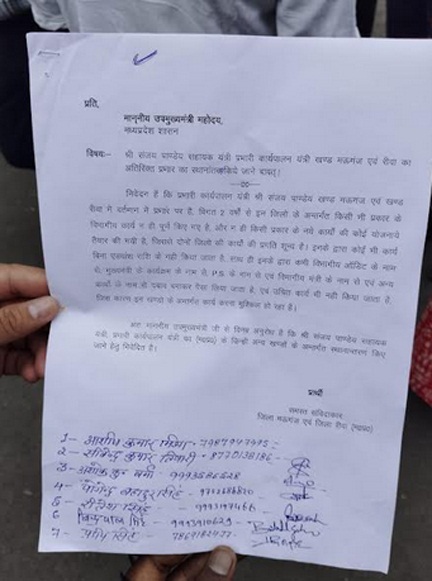 प्रति,
माननीय उपमुख्यमंत्री महोदय,
मध्यप्रदेश शासन
विषयः- श्री संजय पाण्डेय सहायक यंत्री प्रभारी कार्यपालन यंत्री खण्ड मऊगंज एवं रीवा का
अतिरिक्त प्रभार का स्थानांतरण किये जाने बाबत्।
निवेदन है कि प्रभारी कार्यपालन यंत्री श्री संजय पाण्डेय खण्ड मऊगंज एवं खण्ड
रीवा में वर्तमान में प्रभार पर है, विगत 2 वर्षों से इन जिलो के अन्तर्गत किसी भी प्रकार के
विभागीय कार्य न ही पूर्ण किए गए है, और न ही किसी प्रकार के नये कार्यो की कोई योजनाये
तैयार की गयी है, जिससे दोनों जिलो की कार्यो की प्रगति शून्य है। इनके द्वारा कोई भी कार्य
बिना एडवांस राशि के नही किया जाता है, साथ ही इनके द्वारा कभी विभागीय ऑडिट के नाम
से, मुख्यमंत्री के कार्यक्रम के नाम से, P.S के नाम से एवं विभागीय मंत्री के नाम से एवं अन्य
कार्यो के नाम से दबाव बनाकर पैसा लिया जाता है, एवं उचित कार्य भी नही किया जाता है,
जिस कारण इन खण्डो के अन्तर्गत कार्य करना मुश्किल हो रहा है।
अतः माननीय उपमुख्यमंत्री जी से विनम्र अनुरोध है कि श्री संजय पाण्डेय सहायक
यंत्री, प्रभारी कार्यपालन यंत्री का (म०प्र०) के किन्ही अन्य खण्डों के अन्तर्गत स्थानान्तरण किए
जाने हेतु निवेदित है।
प्रार्थी
समस्त संविदाकार
जिला मऊगंज एवं जिला रीवा (म०प्र०)
1- कुमार मिश्रा-
2- तिवारी - 8770138186
3- वर्मा -
4- बहादुर सिंह -
5 सिंह -
6 सिंह -
7- सिंह -